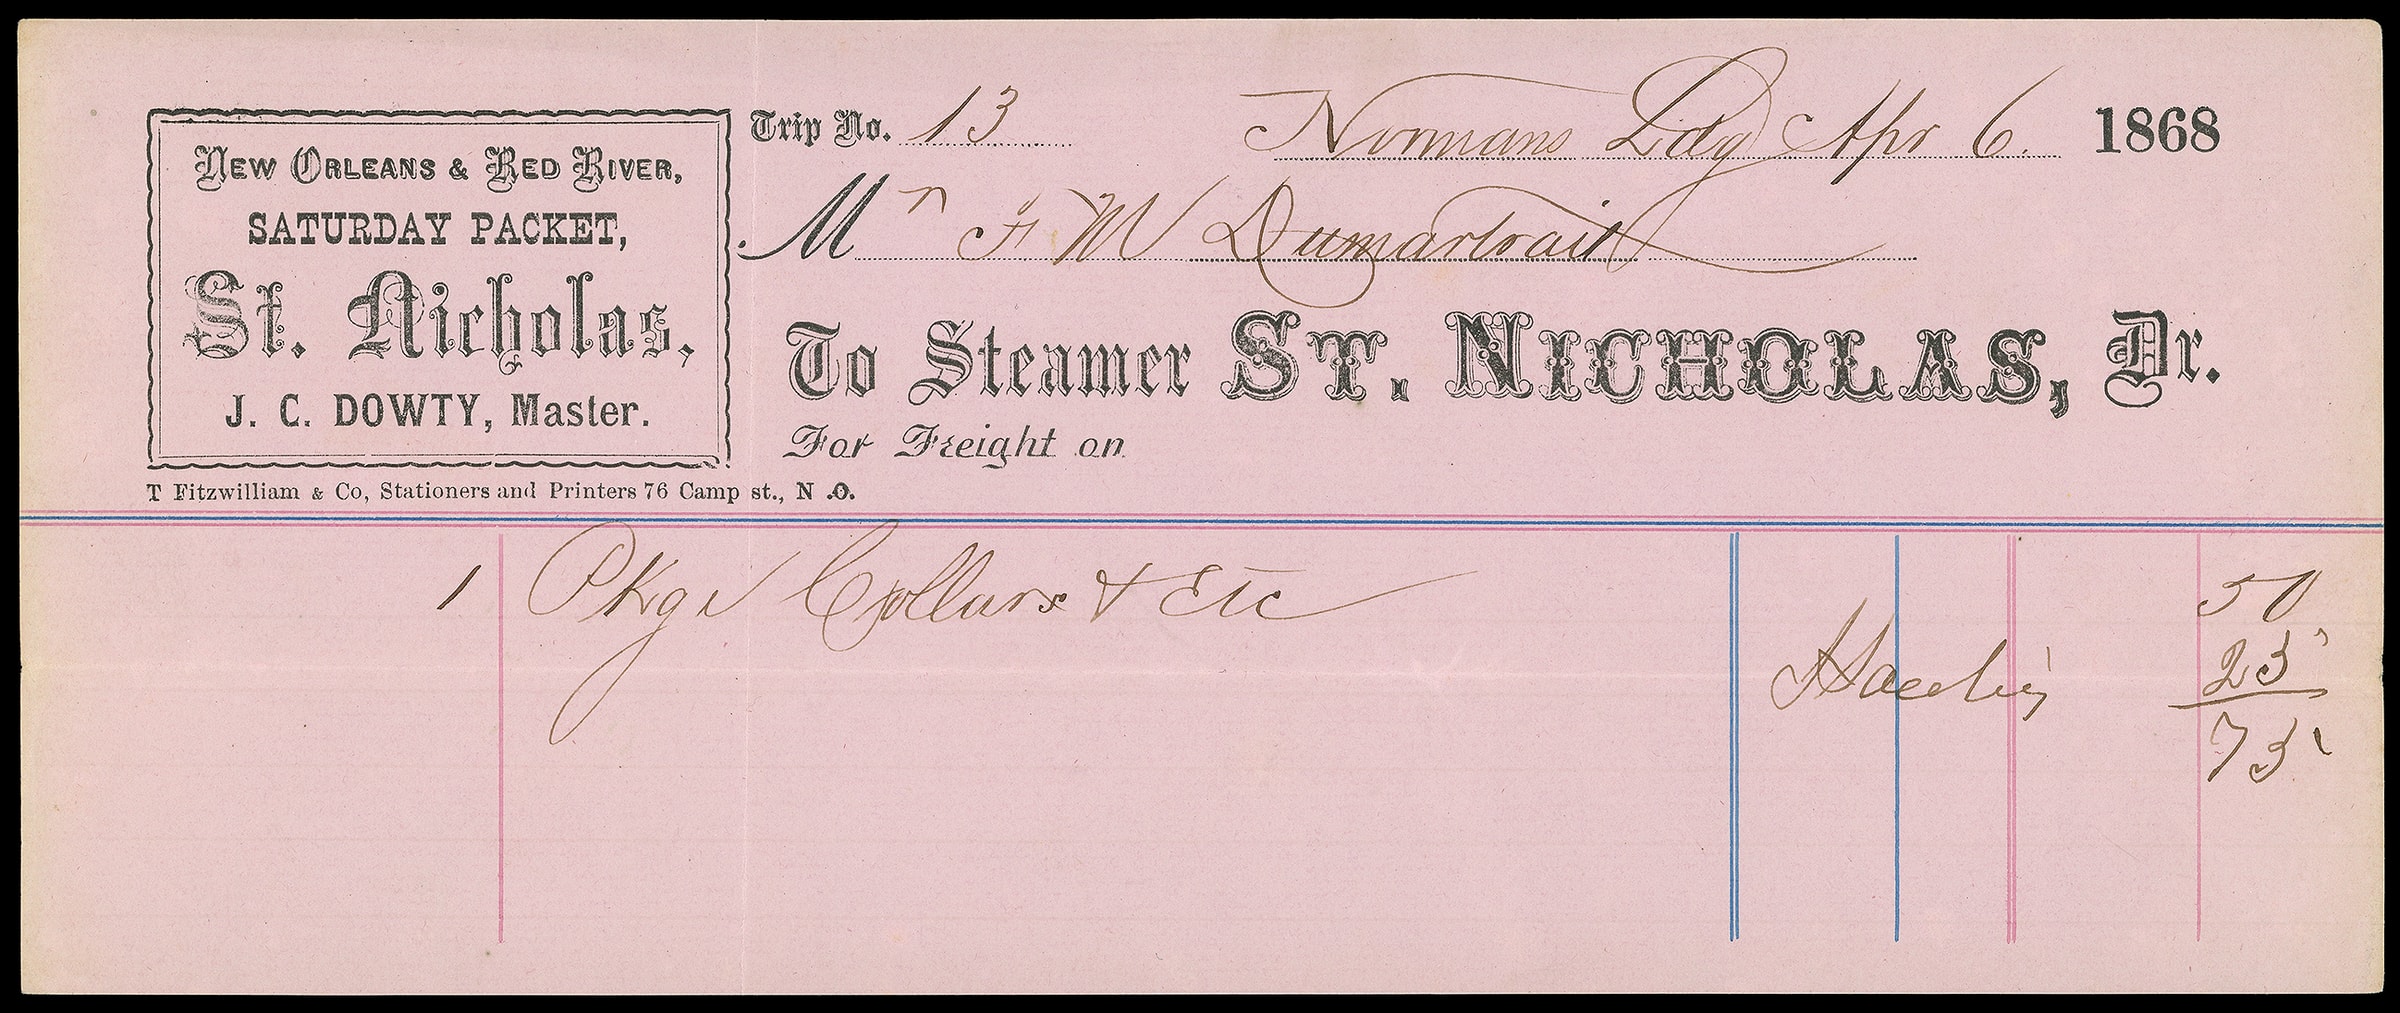 New Orleans & Red River,
SATURDAY PACKET,
St. Nicholas,
J. C. DOWTY, Master.
T Fitzwilliam & Co, Stationers and Printers 76 Camp st., N .O.
Trip No. 13 Normans Ldg Apr 6. 1868
Mr F M Dumartrait
To Steamer ST. NICHOLAS, Dr.
For Freight on
1 Pkge Collars & Etc 50
23
73